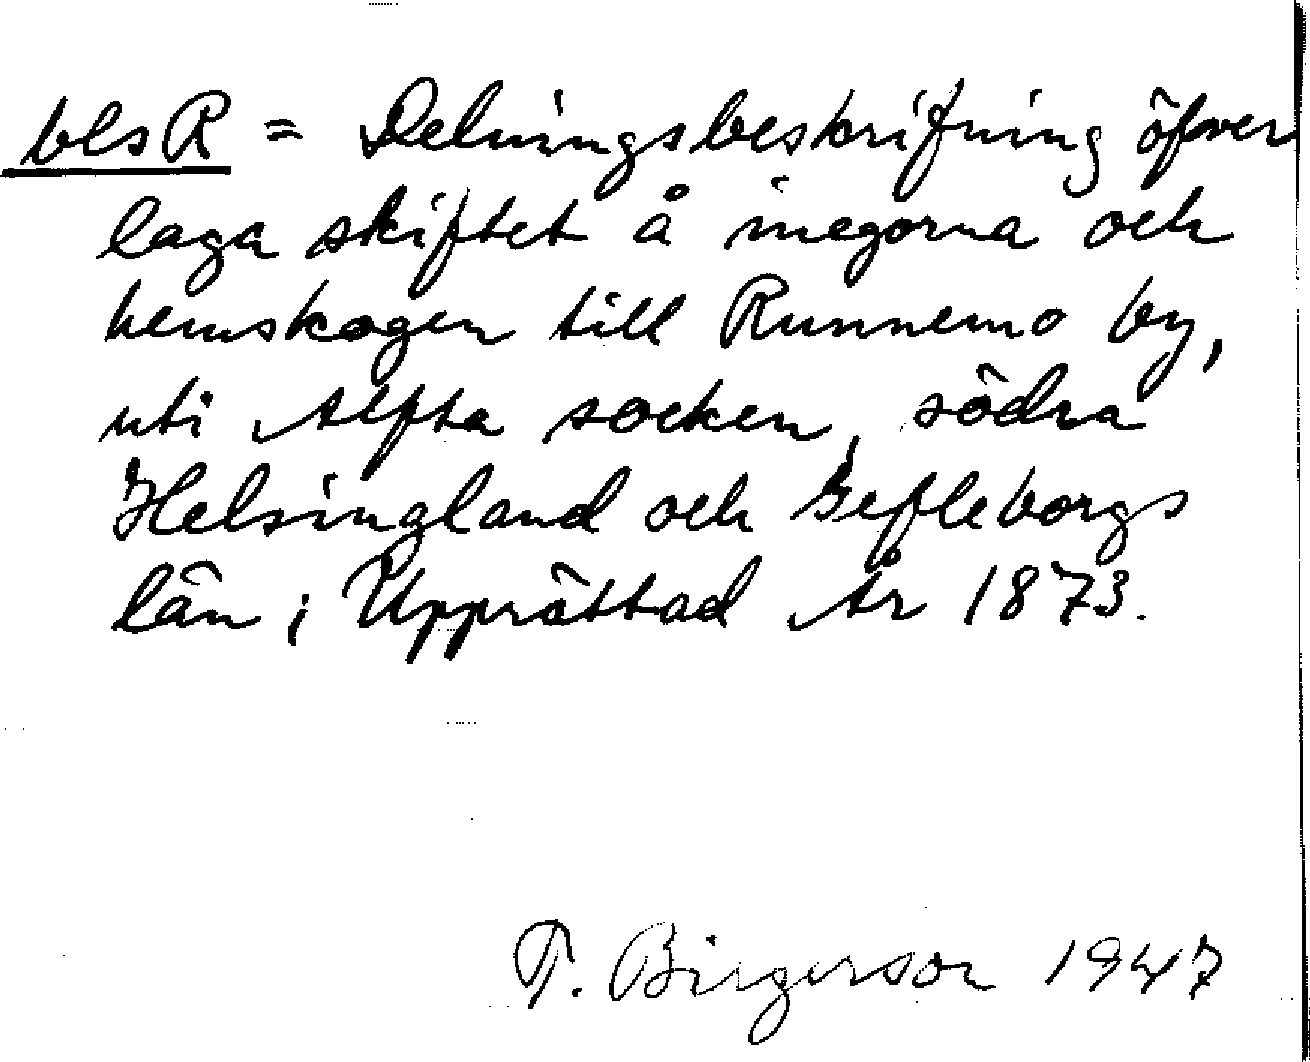 blsR = Delningsbeskrifning öfver
laga skiftet å inegorna och
hemskogen till Runnemo by,
uti Alfta socken, södra
Helsingland och Gefleborgs
län; Upprättad År 1873.
T. Birgerson 1947